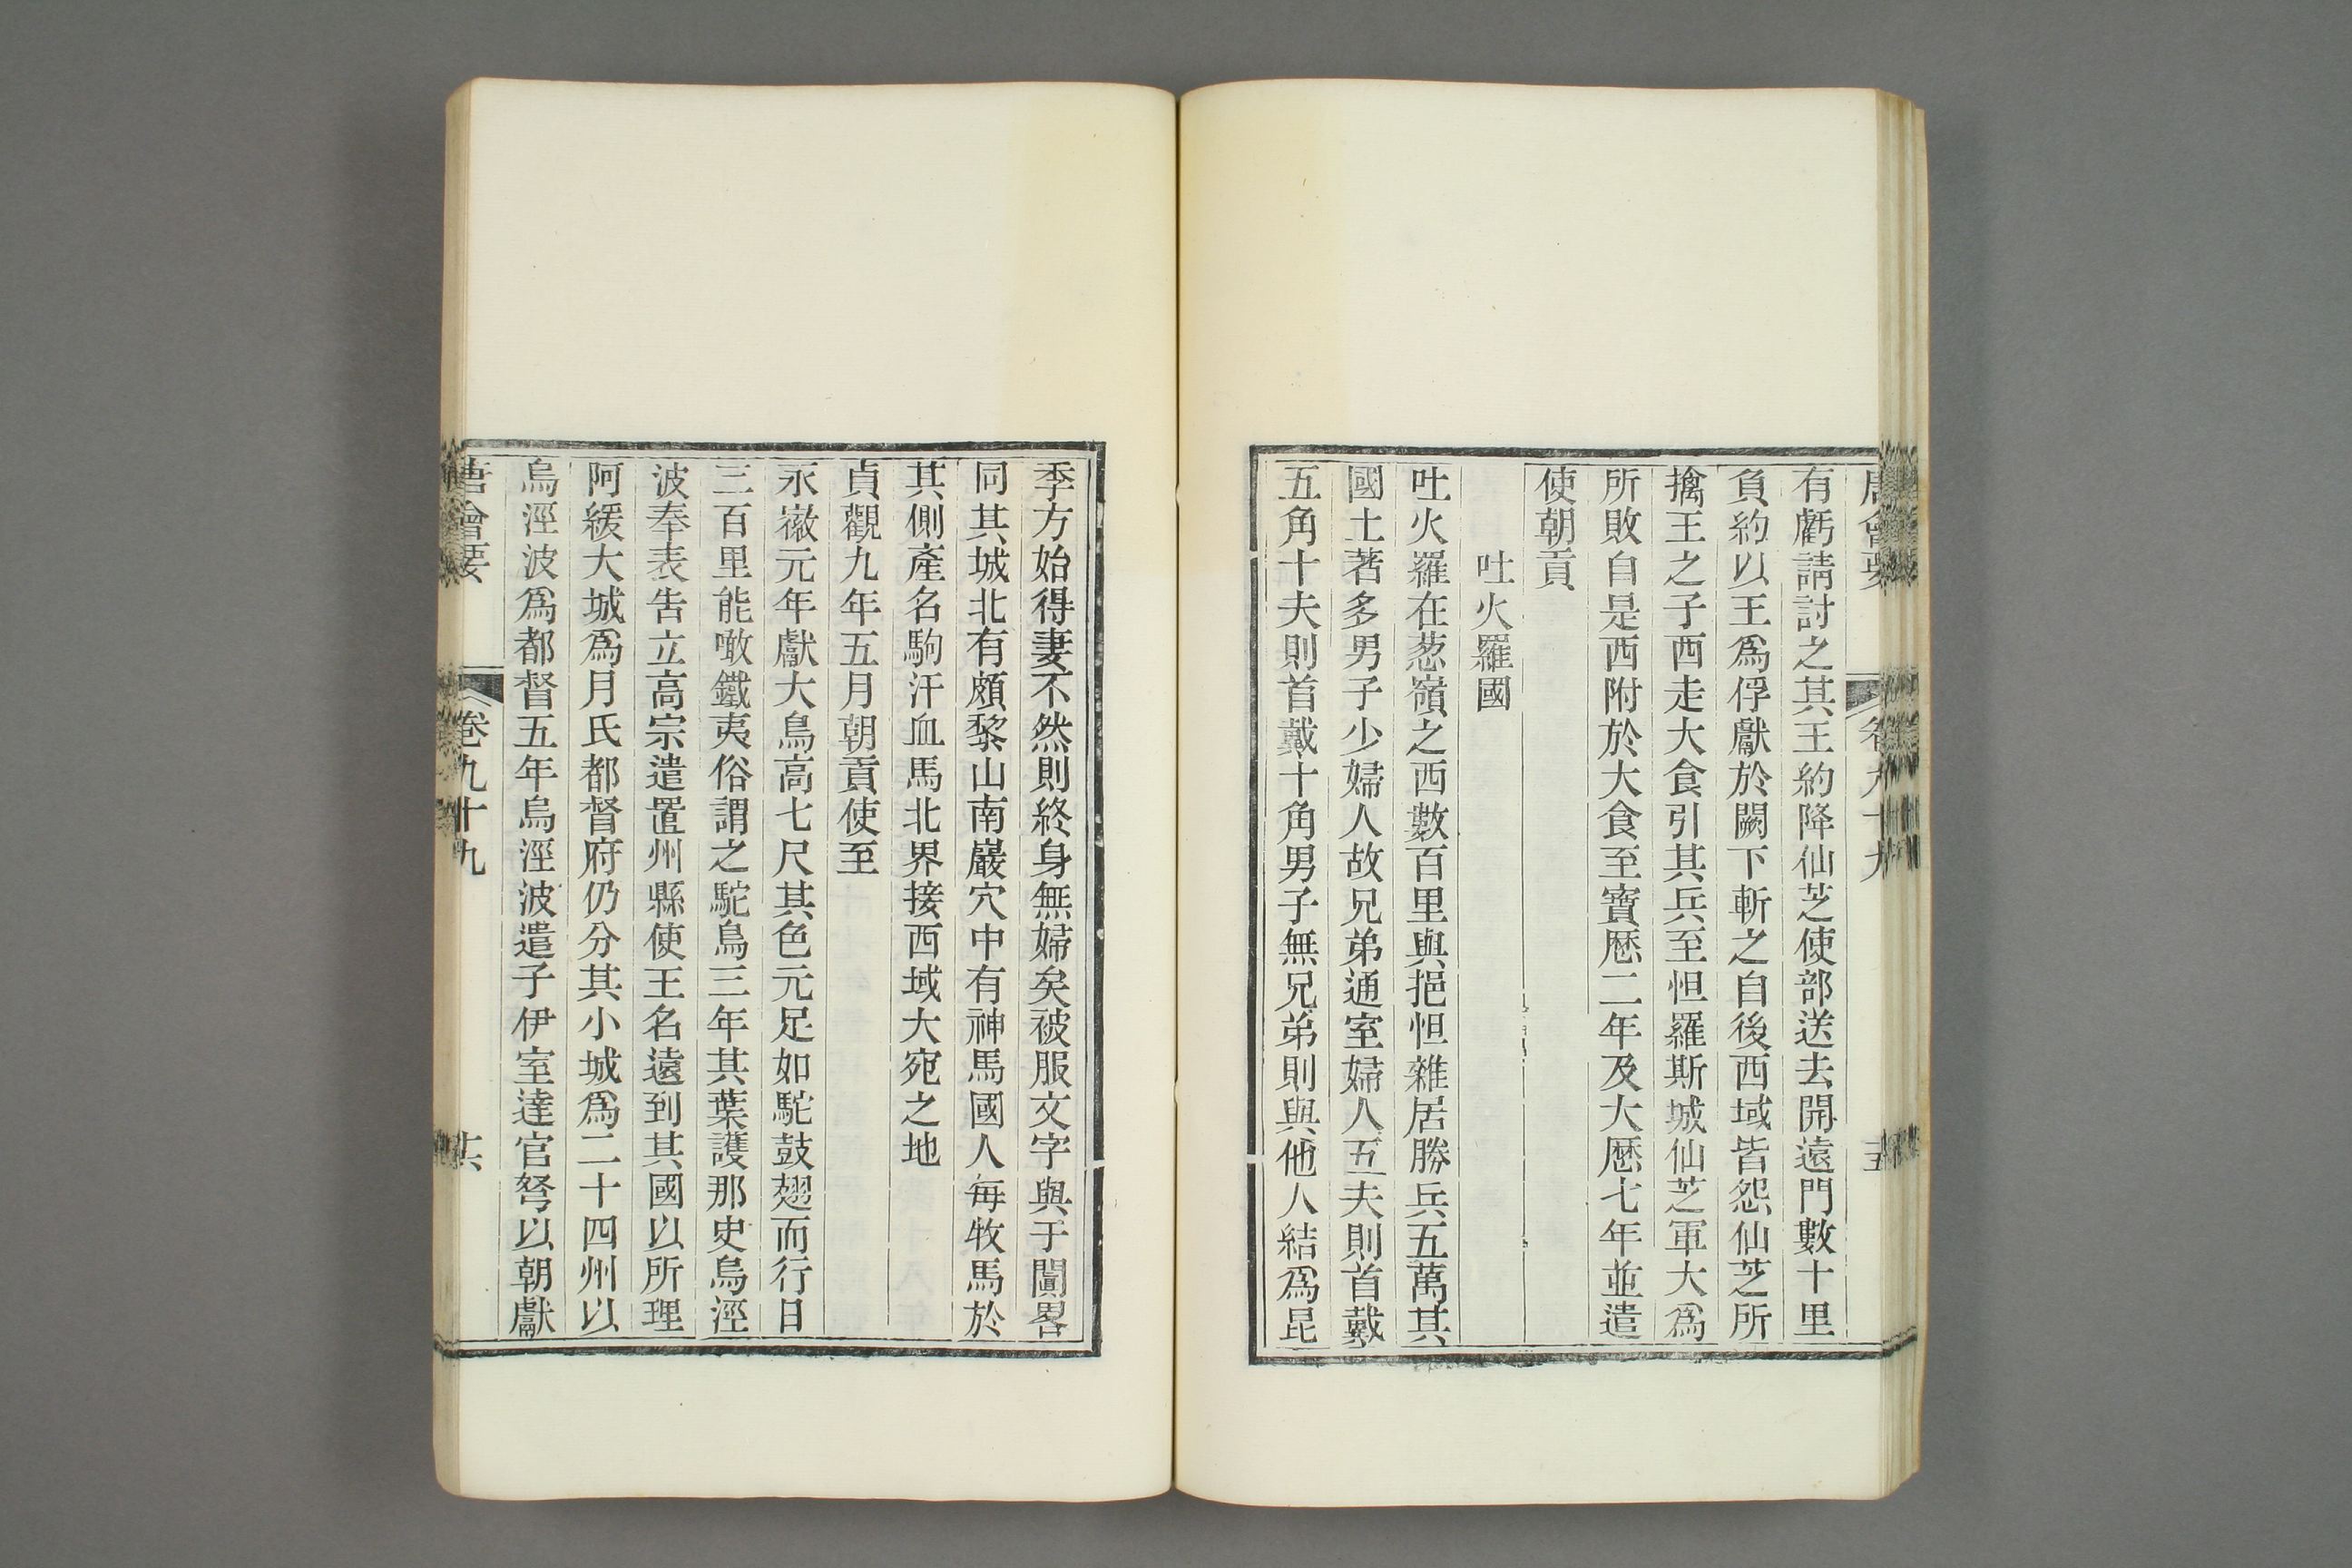 唐會要 卷九十九 十五
有虧請討之其王約降仙芝使部送去開遠門數十里
負約以王爲俘獻於闕下斬之自後西域皆怨仙芝所
擒王之子西走大食引其兵至怛羅斯城仙芝軍大爲
所敗自是西附於大食至寶歷二年及大歷七年並遣
使朝貢
吐火羅國
吐火羅在葱嶺之西數百里與挹怛雜居勝兵五萬其
國土著多男子少婦人故兄弟通室婦人五夫則首戴
五角十夫則首戴十角男子無兄弟則與他人結爲昆
季方始得妻不然則終身無婦矣被服文字與于闐畧
同其城北有頗黎山南巖穴中有神馬國人每牧馬於
其側產名駒汗血馬北界接西域大宛之地
貞觀九年五月朝貢使至
永徽元年獻大鳥高七尺其色元足如駝鼓翅而行日
三百里能噉鐵夷俗謂之駝鳥三年其葉護那史烏溼
波奉表吿立高宗遣置州縣使王名遠到其國以所理
阿緩大城爲月氏都督府仍分其小城爲二十四州以
烏溼波爲都督五年烏溼波遣子伊室達官弩以朝獻
唐會要 卷九十九 十六